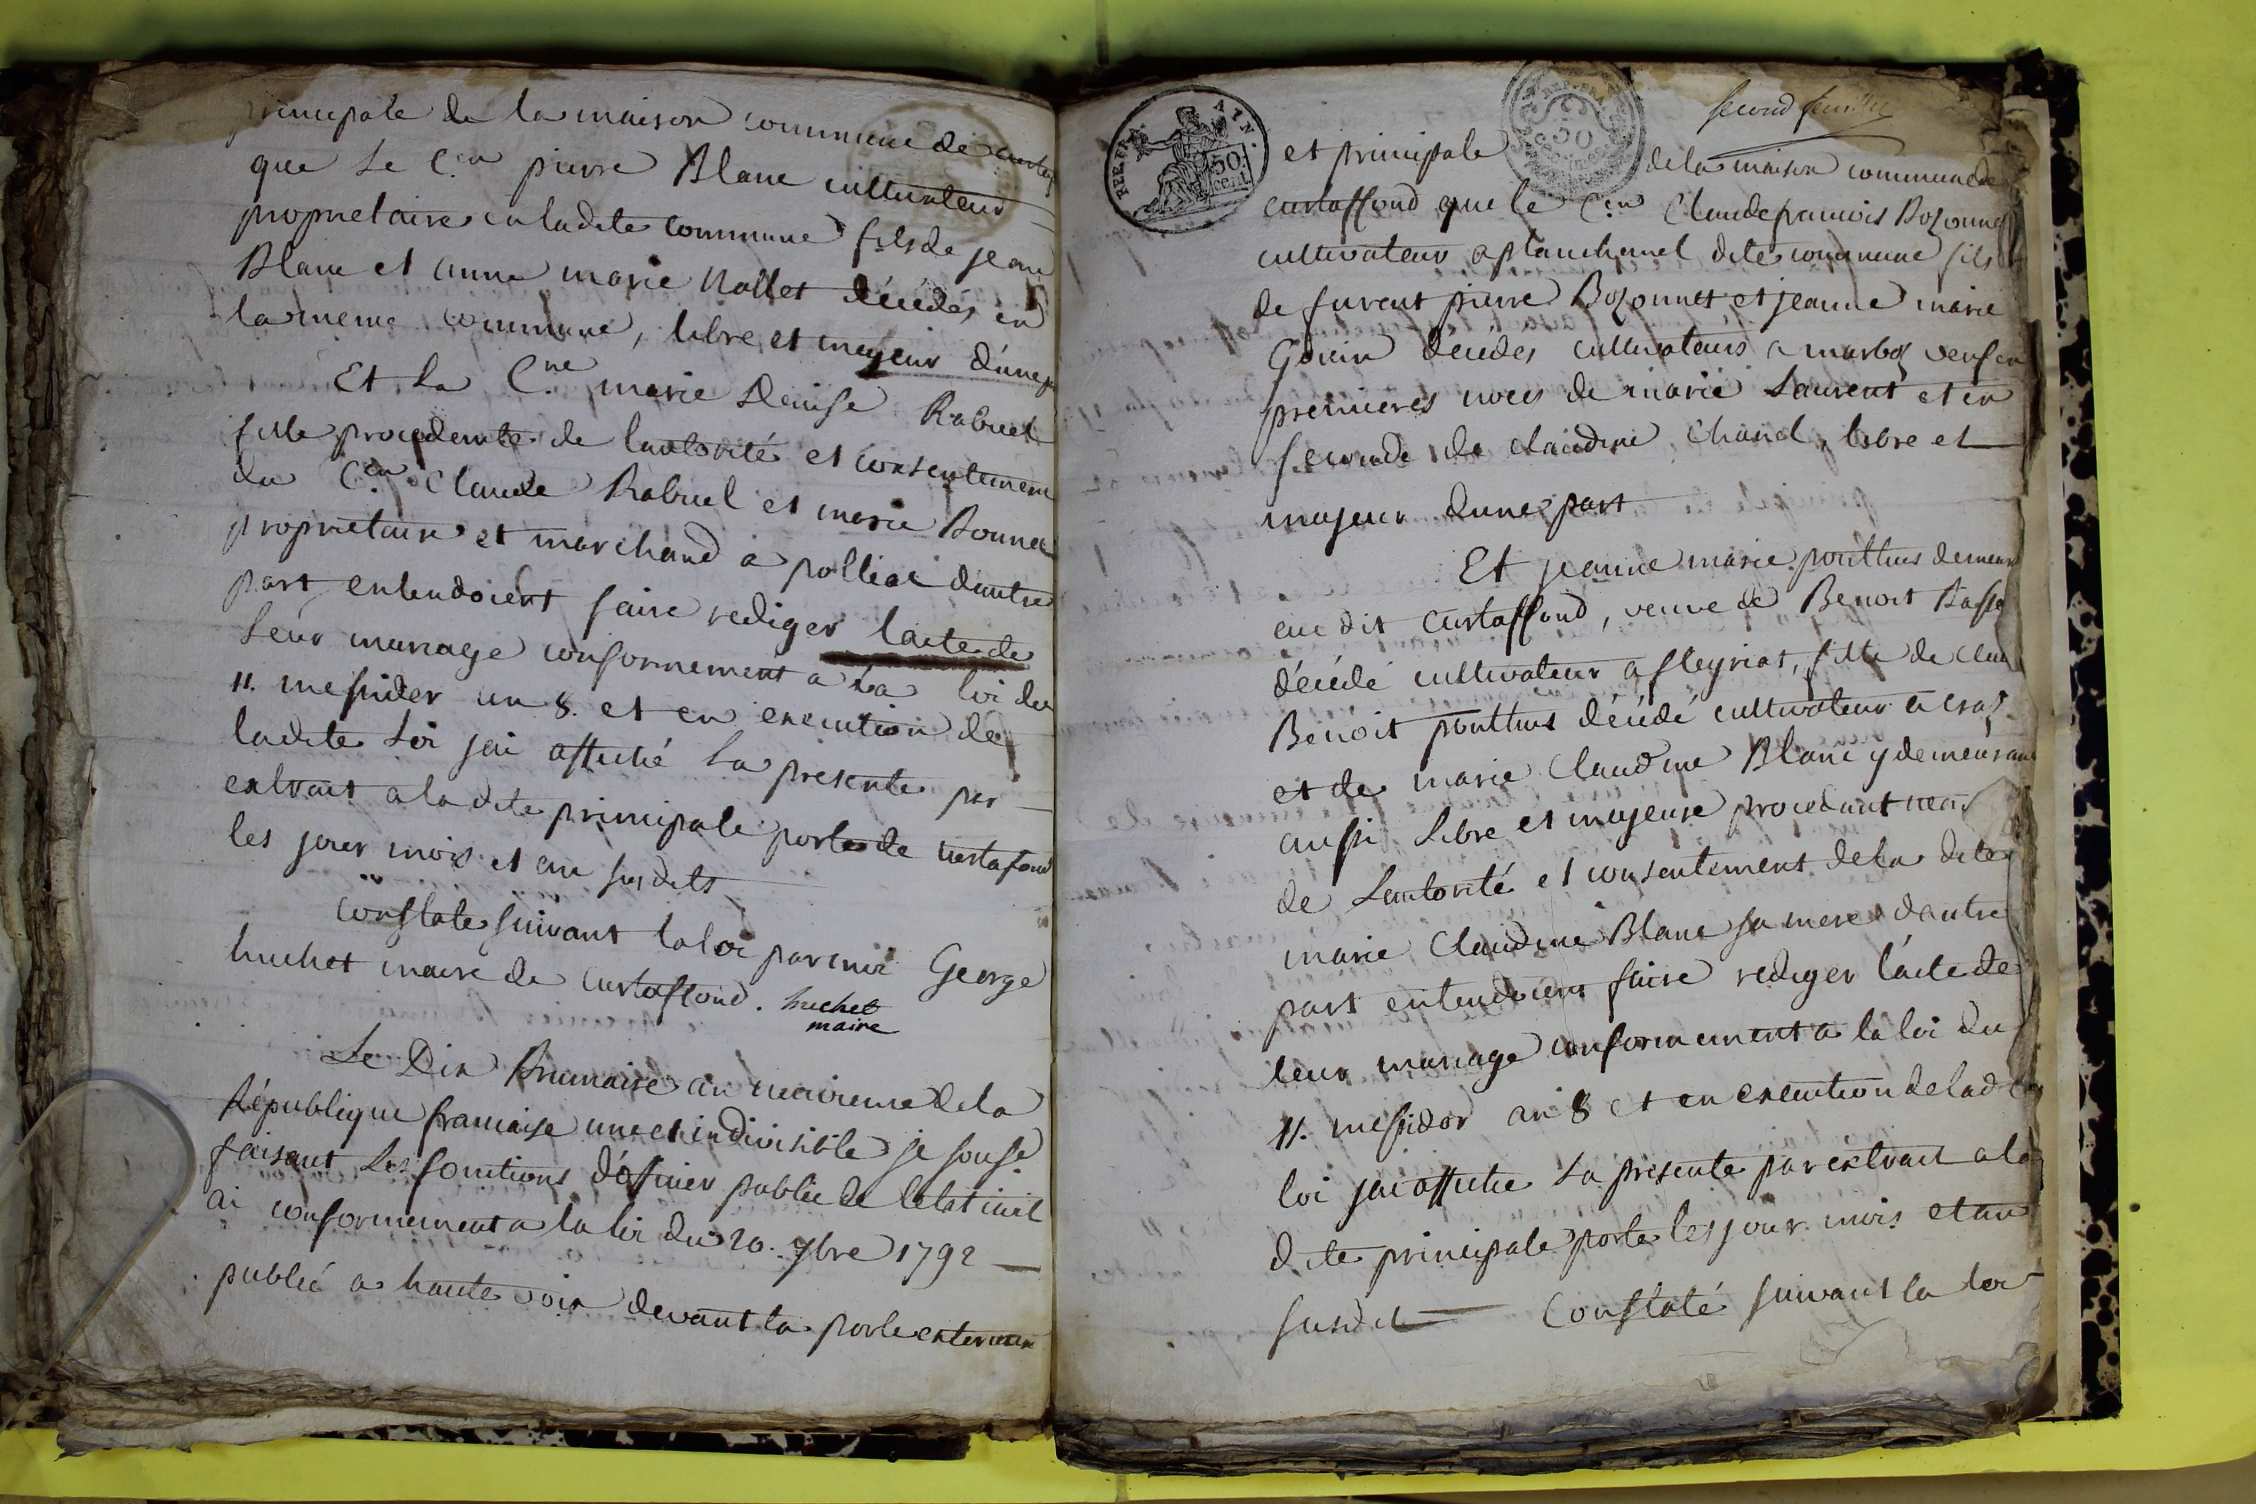 principale de la maison commune de
que le C.en pierre Blanc cultivateur
proprietaire en ladite commune fils de jean
Blanc et anne marie Nallet décédés en
la meme commune, libre et majeur d'une p
Et la C.ne marie Denise Rabuel
fille procedente de lautorité et consentement
du C.en Claude Rabuel et marie Bonnet
proprietaire et marchand a polliat dautre
part entendoient faire rediger lacte de
leur mariage conformement a la loi du
11. messider an 8. et en execution de
ladite loi jai affiché la presente par
extrait a la dite principale porte de curtafond
les jour mois et an susdits
constate suivant la loi par moi George
huchet maire de curtaffond. huchet
maire
Le Dix Brumaire an neuvieme de la
République francaise une et indivisible je souss.é
faisant les fonctions d'officier public de letat civil
ai conformement a la loi du 20. 7bre 1792
publié a haute voix devant la porte exterieure
second feuillet
REP.FRA. AIN.
50 cent.
et principale de la maison commune de
curtaffond que le C.en Claude francois Bozonnet
cultivateur a planchemel dite commune fils
de furent pierre Bozonnet et jeanne marie
Gouin décédés cultivateurs a marboz veuf en
premieres noces de marie Laurent et en
seconde de claudine Chanel, libre et
majeur dune part
Et jeanne marie ponthus demeur
au dit curtaffond, veuve de Benoit
décédé cultivateur a fleyriat, fille de
Benoit ponthus décédé cultivateur a cras
et de marie Claudine Blanc y demeurant
aussi libre et majeure procedant
de Lautorité et consentement de la dite
marie Claudine Blanc sa mere dautre
part entendoient faire rediger lácte de
leur mariage conformement a la loi du
11. messidor an 8 et en execution de ladite
loi jai affiche la presente par extrait a la
dite principale porte les jour mois et an
susdit Constaté suivant la loi